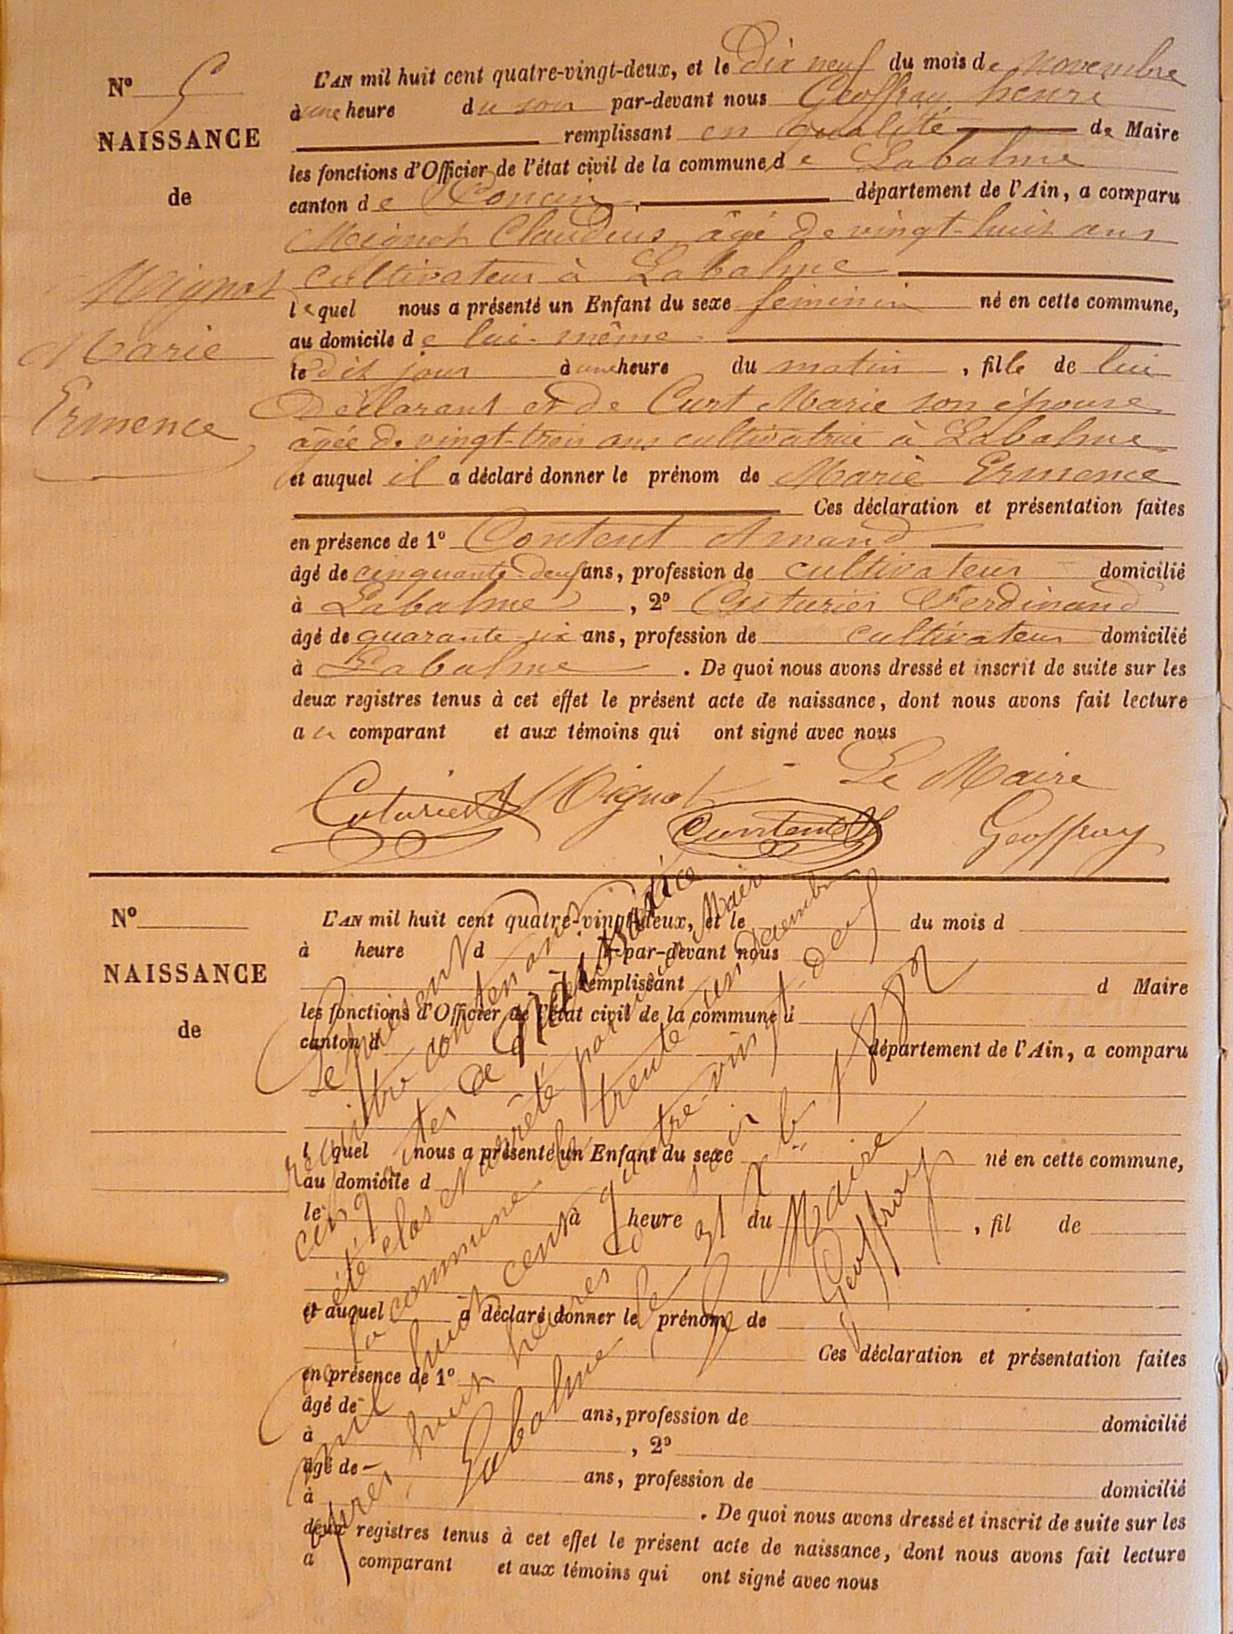 N° 5
NAISSANCE
de
Mignot
Marie
Ermence
L'AN mil huit cent quatre-vingt-deux, et le Dix neuf du mois de novembre
à une heure du soir par-devant nous Geoffray henri
remplissant en qualité de Maire
les fonctions d'Officier de l'état civil de la commune de Labalme
canton de Poncin, département de l'Ain, a comparu
Mignot Claudius âgé de vingt-huit ans
cultivateur à Labalme
lequel nous a présenté un Enfant du sexe féminin né en cette commune,
au domicile de lui-même
le dit jour à une heure du matin, fille de lui
Déclarant et de Curt Marie son épouse
âgée de vingt-trois ans cultivatrice à Labalme
et auquel il a déclaré donner le prénom de Marie Ermence
Ces déclaration et présentation faites
en présence de 1° Content Armand
âgé de cinquante-deux ans, profession de cultivateur domicilié
à Labalme, 2° Cuturier Ferdinand
âgé de quarante six ans, profession de cultivateur domicilié
à Labalme. De quoi nous avons dressé et inscrit de suite sur les
deux registres tenus à cet effet le présent acte de naissance, dont nous avons fait lecture
au comparant et aux témoins qui ont signé avec nous
Le Maire
Cuturier F Mignot Content A Geoffray
N°
NAISSANCE
de
L'AN mil huit cent quatre-vingt-deux, et le du mois d
à heure d par-devant nous
remplissant d Maire
les fonctions d'Officier de l'état civil de la commune d
canton d département de l'Ain, a comparu
l quel nous a présenté un Enfant du sexe né en cette commune,
au domicile d
le à heure du , fil de
et auquel a déclaré donner le prénom de
Ces déclaration et présentation faites
en présence de 1°
âgé de ans, profession de domicilié
à , 2°
âgé de ans, profession de domicilié
à . De quoi nous avons dressé et inscrit de suite sur les
deux registres tenus à cet effet le présent acte de naissance, dont nous avons fait lecture
a comparant et aux témoins qui ont signé avec nous
Le présent
registre contenant
cinq actes de naissance
a été clos et arrêté par nous Maire
de la commune le trente un Décembre
mil huit cent quatre-vingt-deux
après huit heures du soir
Labalme le 31 Xbre 1882
Le Maire
Geoffray